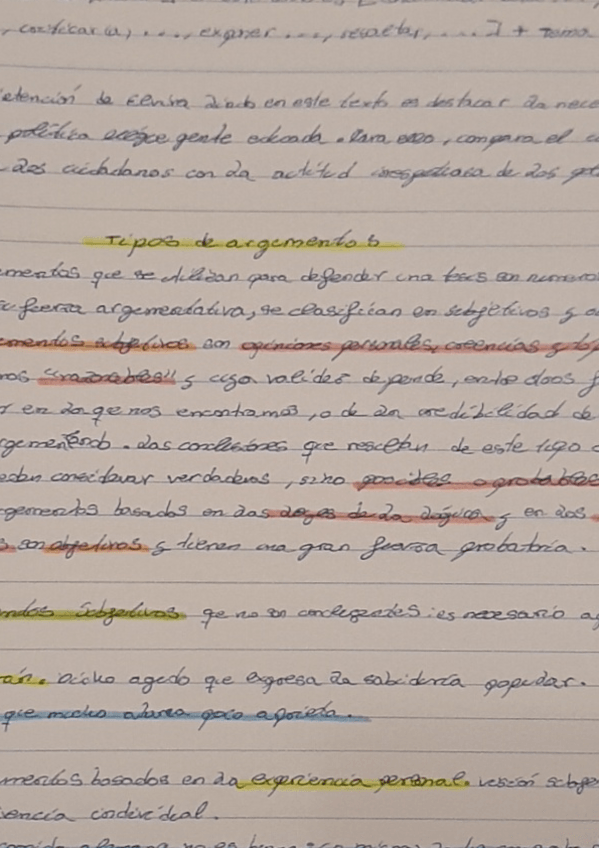 , exponer ..., resaltar, ...] + Tema
intención de Elvira Lindo en este texto es destacar la nece
política exige gente educada. Para eso, compara el
los ciudadanos con la actitud irrespetuosa de los
Tipos de argumentos
mentos que se utilizan para defender una tesis son numero
su fuerza argumentativa, se clasifican en subjetivos y o
umentos subjetivos son opiniones personales, creencias y
nos "razonables" y cuya validez depende, entre otros f
en la que nos encontramos, o de la credibilidad de
rgumentando. Las conclusiones que resultan de este tipo
edan considerar verdaderas, sino posibles o probables
rgumentos basados en las leyes de la lógica y en los
s son objetivos y tienen una gran fuerza probatoria.
entos subjetivos que no son concluyentes: es necesario a
rán. Dicho agudo que expresa la sabiduría popular.
que mucho abarca poco aprieta.
mentos basados en la experiencia personal. versión subje
vencia individual.